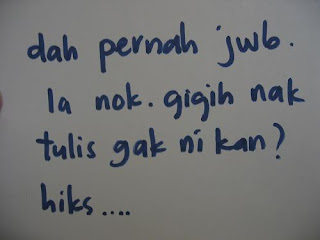 dah pernah jwb.
la nok. gigih nak
tulis gak ni kan?
hiks....